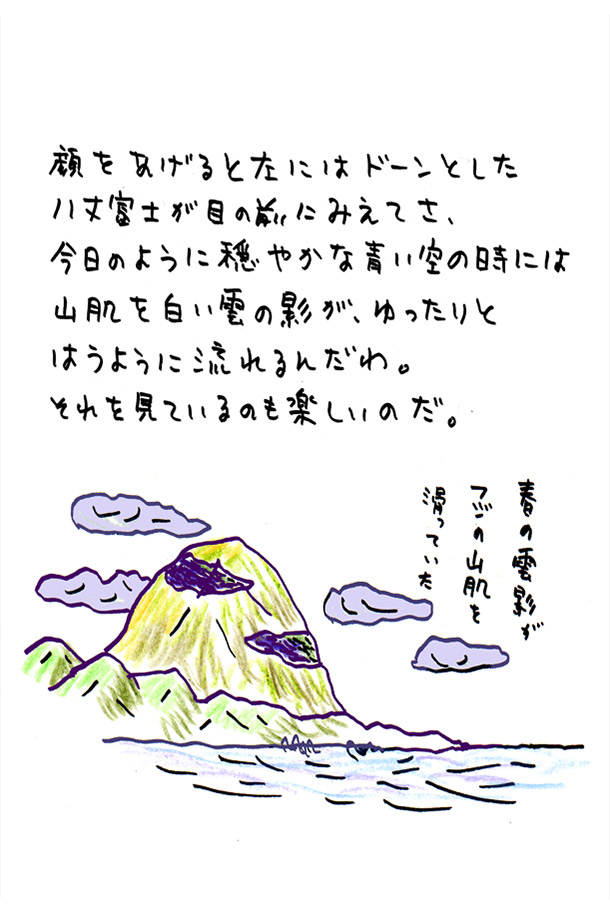 顔をあげると左にはドーンとした
八丈富士が目の前にみえてさ、
今日のように穏やかな青い空の時には
山肌を白い雲の影が、ゆったりと
はうように流れるんだわ。
それを見ているのも楽しいのだ。
春の雲影が
フジの山肌を
滑っていた